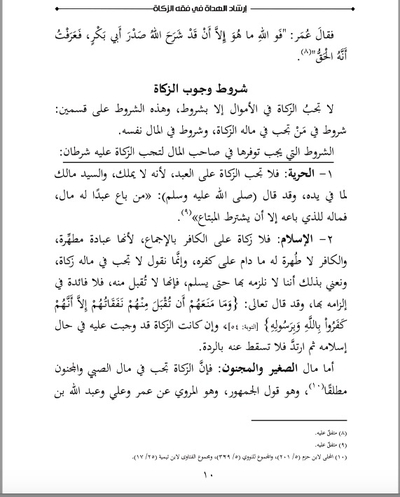 إرشاد الهداة في فقه الزكاة
فقالَ عُمَر: "فَو اللهِ ما هُوَ إِلاَّ أَنْ قَدْ شَرَحَ اللهُ صَدْرَ أَبي بَكْرٍ، فَعَرَفْتُ
أَنَّهُ الْحَقُّ"(٨).
شروط وجوب الزكاة
لا تجبُ الزكاة في الأموال إلا بشروط، وهذه الشروط على قسمين:
شروط في مَنْ تجب في ماله الزكاة، وشروط في المال نفسه.
الشروط التي يجب توفرها في صاحب المال لتجب الزكاة عليه شرطان:
١- الحرية: فلا تجب الزكاة على العبد، لأنه لا يملك، والسيد مالك
لما في يده، وقد قال (صلى الله عليه وسلم): «من باع عبدًا له مال،
فماله للذي باعه إلا أن يشترط المبتاع»(٩).
٢- الإسلام: فلا زكاة على الكافر بالإجماع، لأنها عبادة مطهِّرة،
والكافر لا طُهرة له ما دام على كفره، وإنَّما نقول لا تجب في ماله زكاة،
ونعني بذلك أننا لا نلزمه بها حتى يسلم، فإنها لا تُقبل منه، فلا فائدة في
إلزامه بها، وقد قال تعالى: {وَمَا مَنَعَهُمْ أَن تُقْبَلَ مِنْهُمْ نَفَقَاتُهُمْ إِلاَّ أَنَّهُمْ
كَفَرُواْ بِاللَّهِ وَبِرَسُولِهِ} [التوبة: ٥٤]، وإن كانت الزكاة قد وجبت عليه في حال
إسلامه ثم ارتدَّ فلا تسقط عنه بالردة.
أما مال الصغير والمجنون: فإنَّ الزكاة تجب في مال الصبي والمجنون
مطلقًا(١٠)، وهو قول الجمهور، وهو المروي عن عمر وعلي وعبد الله بن
(٨) متفق عليه.
(٩) متفق عليه.
(١٠) المحلى لابن حزم (٥/ ٢٠١)، والمجموع للنووي (٥/ ٣٩٩)، ومجموع الفتاوى لابن تيمية (٢٥/ ١٧).
١٠